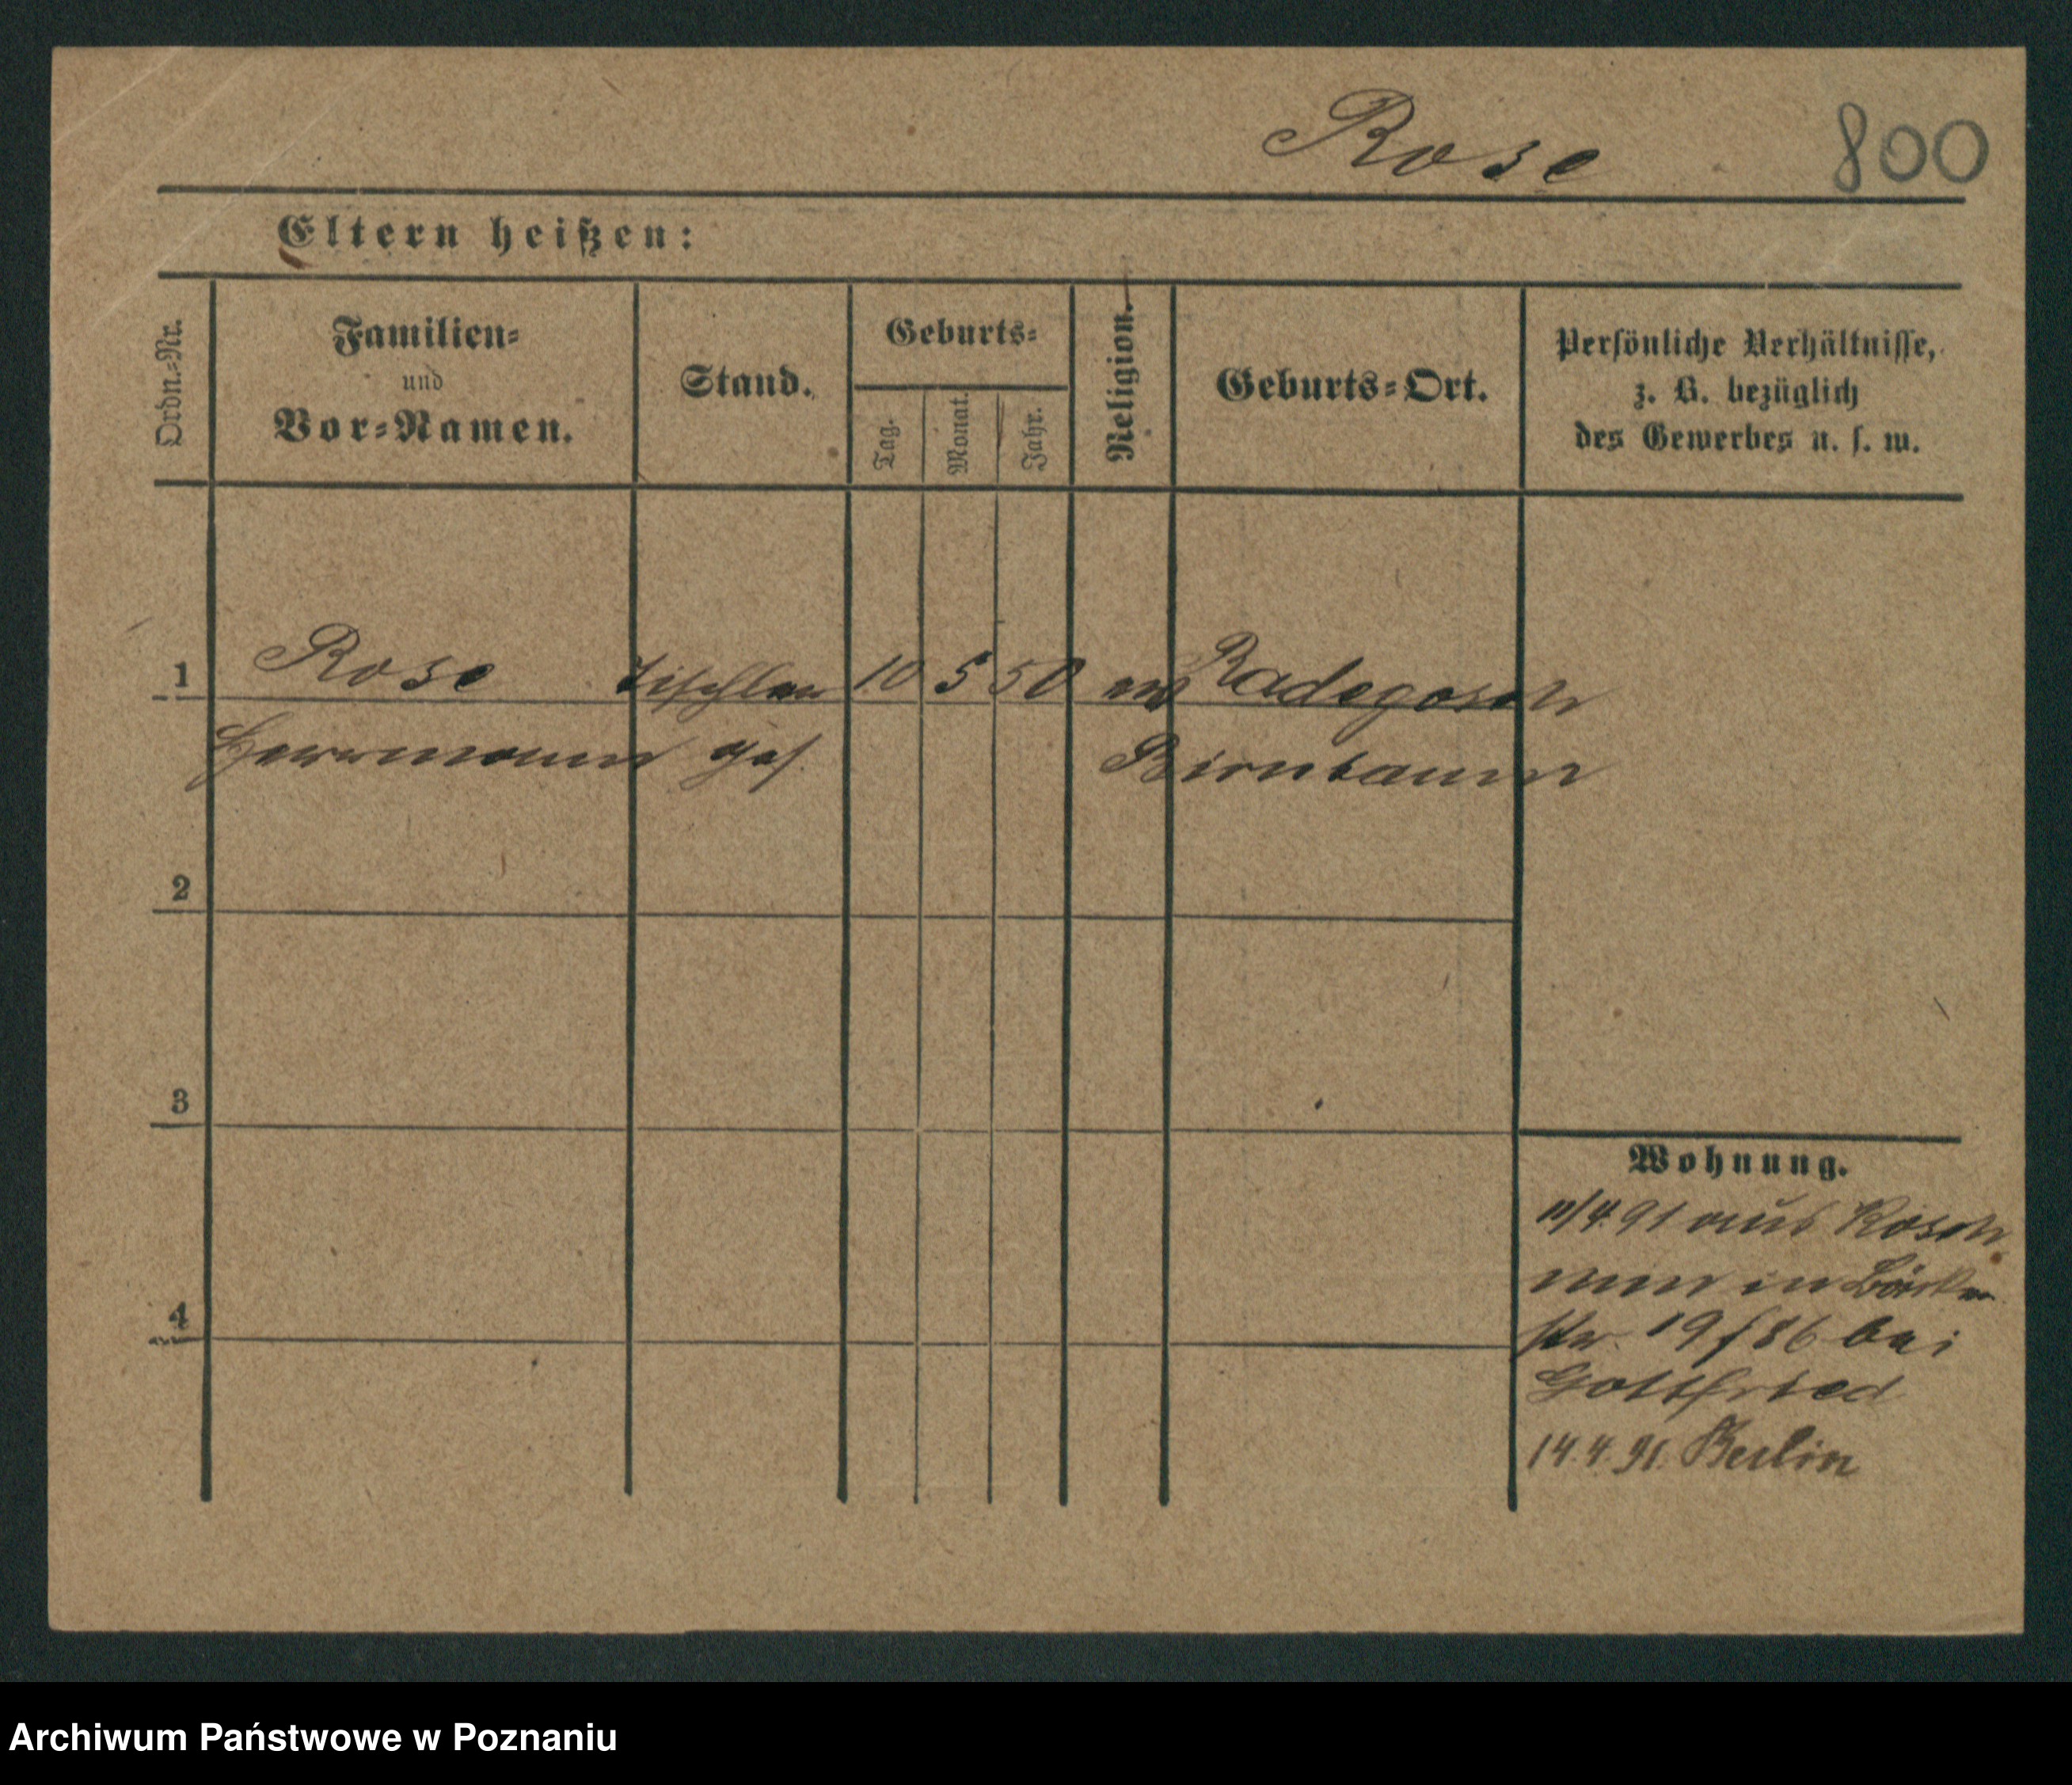 Rose 800
Eltern heißen:
Ordn.-Nr.
Familien-
und
Vor-Namen.
Stand.
Geburts-
Tag.
Monat.
Jahr.
Religion.
Geburts-Ort.
Persönliche Verhältnisse,
z. B. bezüglich
des Gewerbes u. s. w.
1 Rose Tischler 10 5 50 Radegosch
Herrmann Ges. Birnbaum
2
3
4
Wohnung.
4.91 aus
in
str. 19/86 bei
Gottfried
14.4.91. Berlin
Archiwum Państwowe w Poznaniu